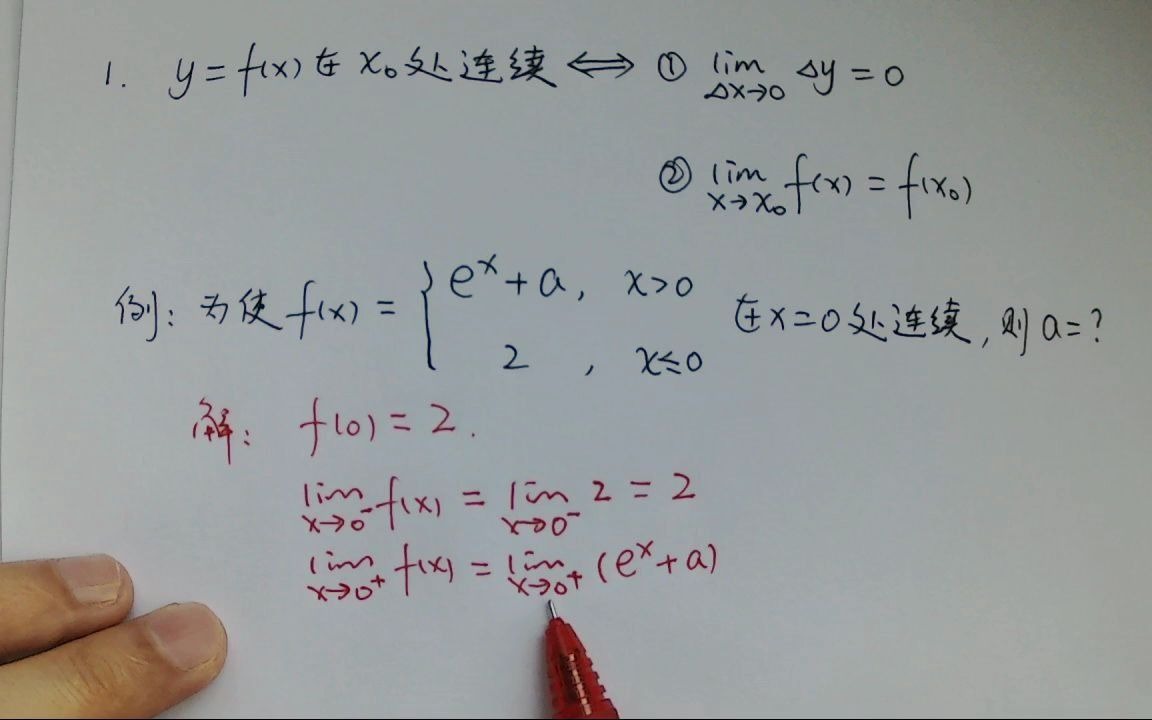 1. y=f(x)在x₀处连续 ⟺ ① lim Δx→0 Δy=0
② lim x→x₀ f(x)=f(x₀)
例:为使f(x)={ eˣ+a, x>0
2, x≤0
在x=0处连续,则a=?
解: f(0)=2.
lim x→0⁻ f(x)=lim x→0⁻ 2=2
lim x→0⁺ f(x)=lim x→0⁺ (eˣ+a)